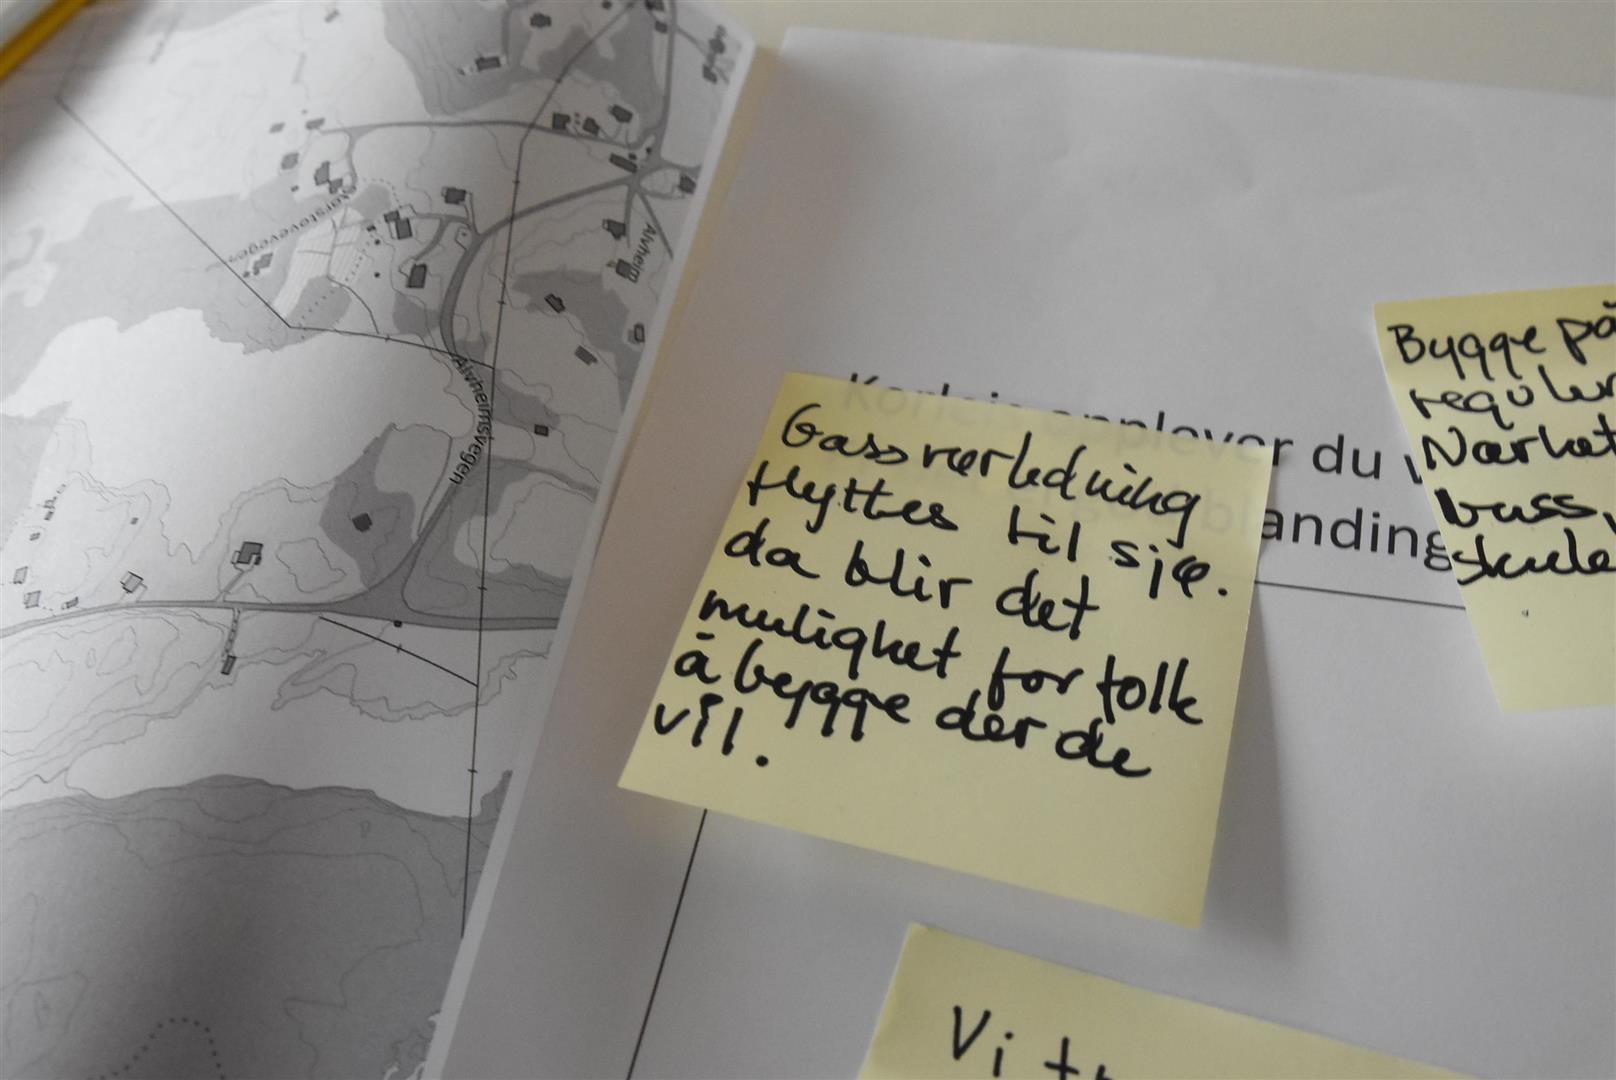 Nørstøvevegen
Alvheim
Alvheimsvegen
Korleis opplever du
blanding
Gassrørledning
flyttes til sjø.
da blir det
mulighet for folk
å bygge der de
vil.
Bygge på
reguler
Nærhet
buss,
skule
Vi